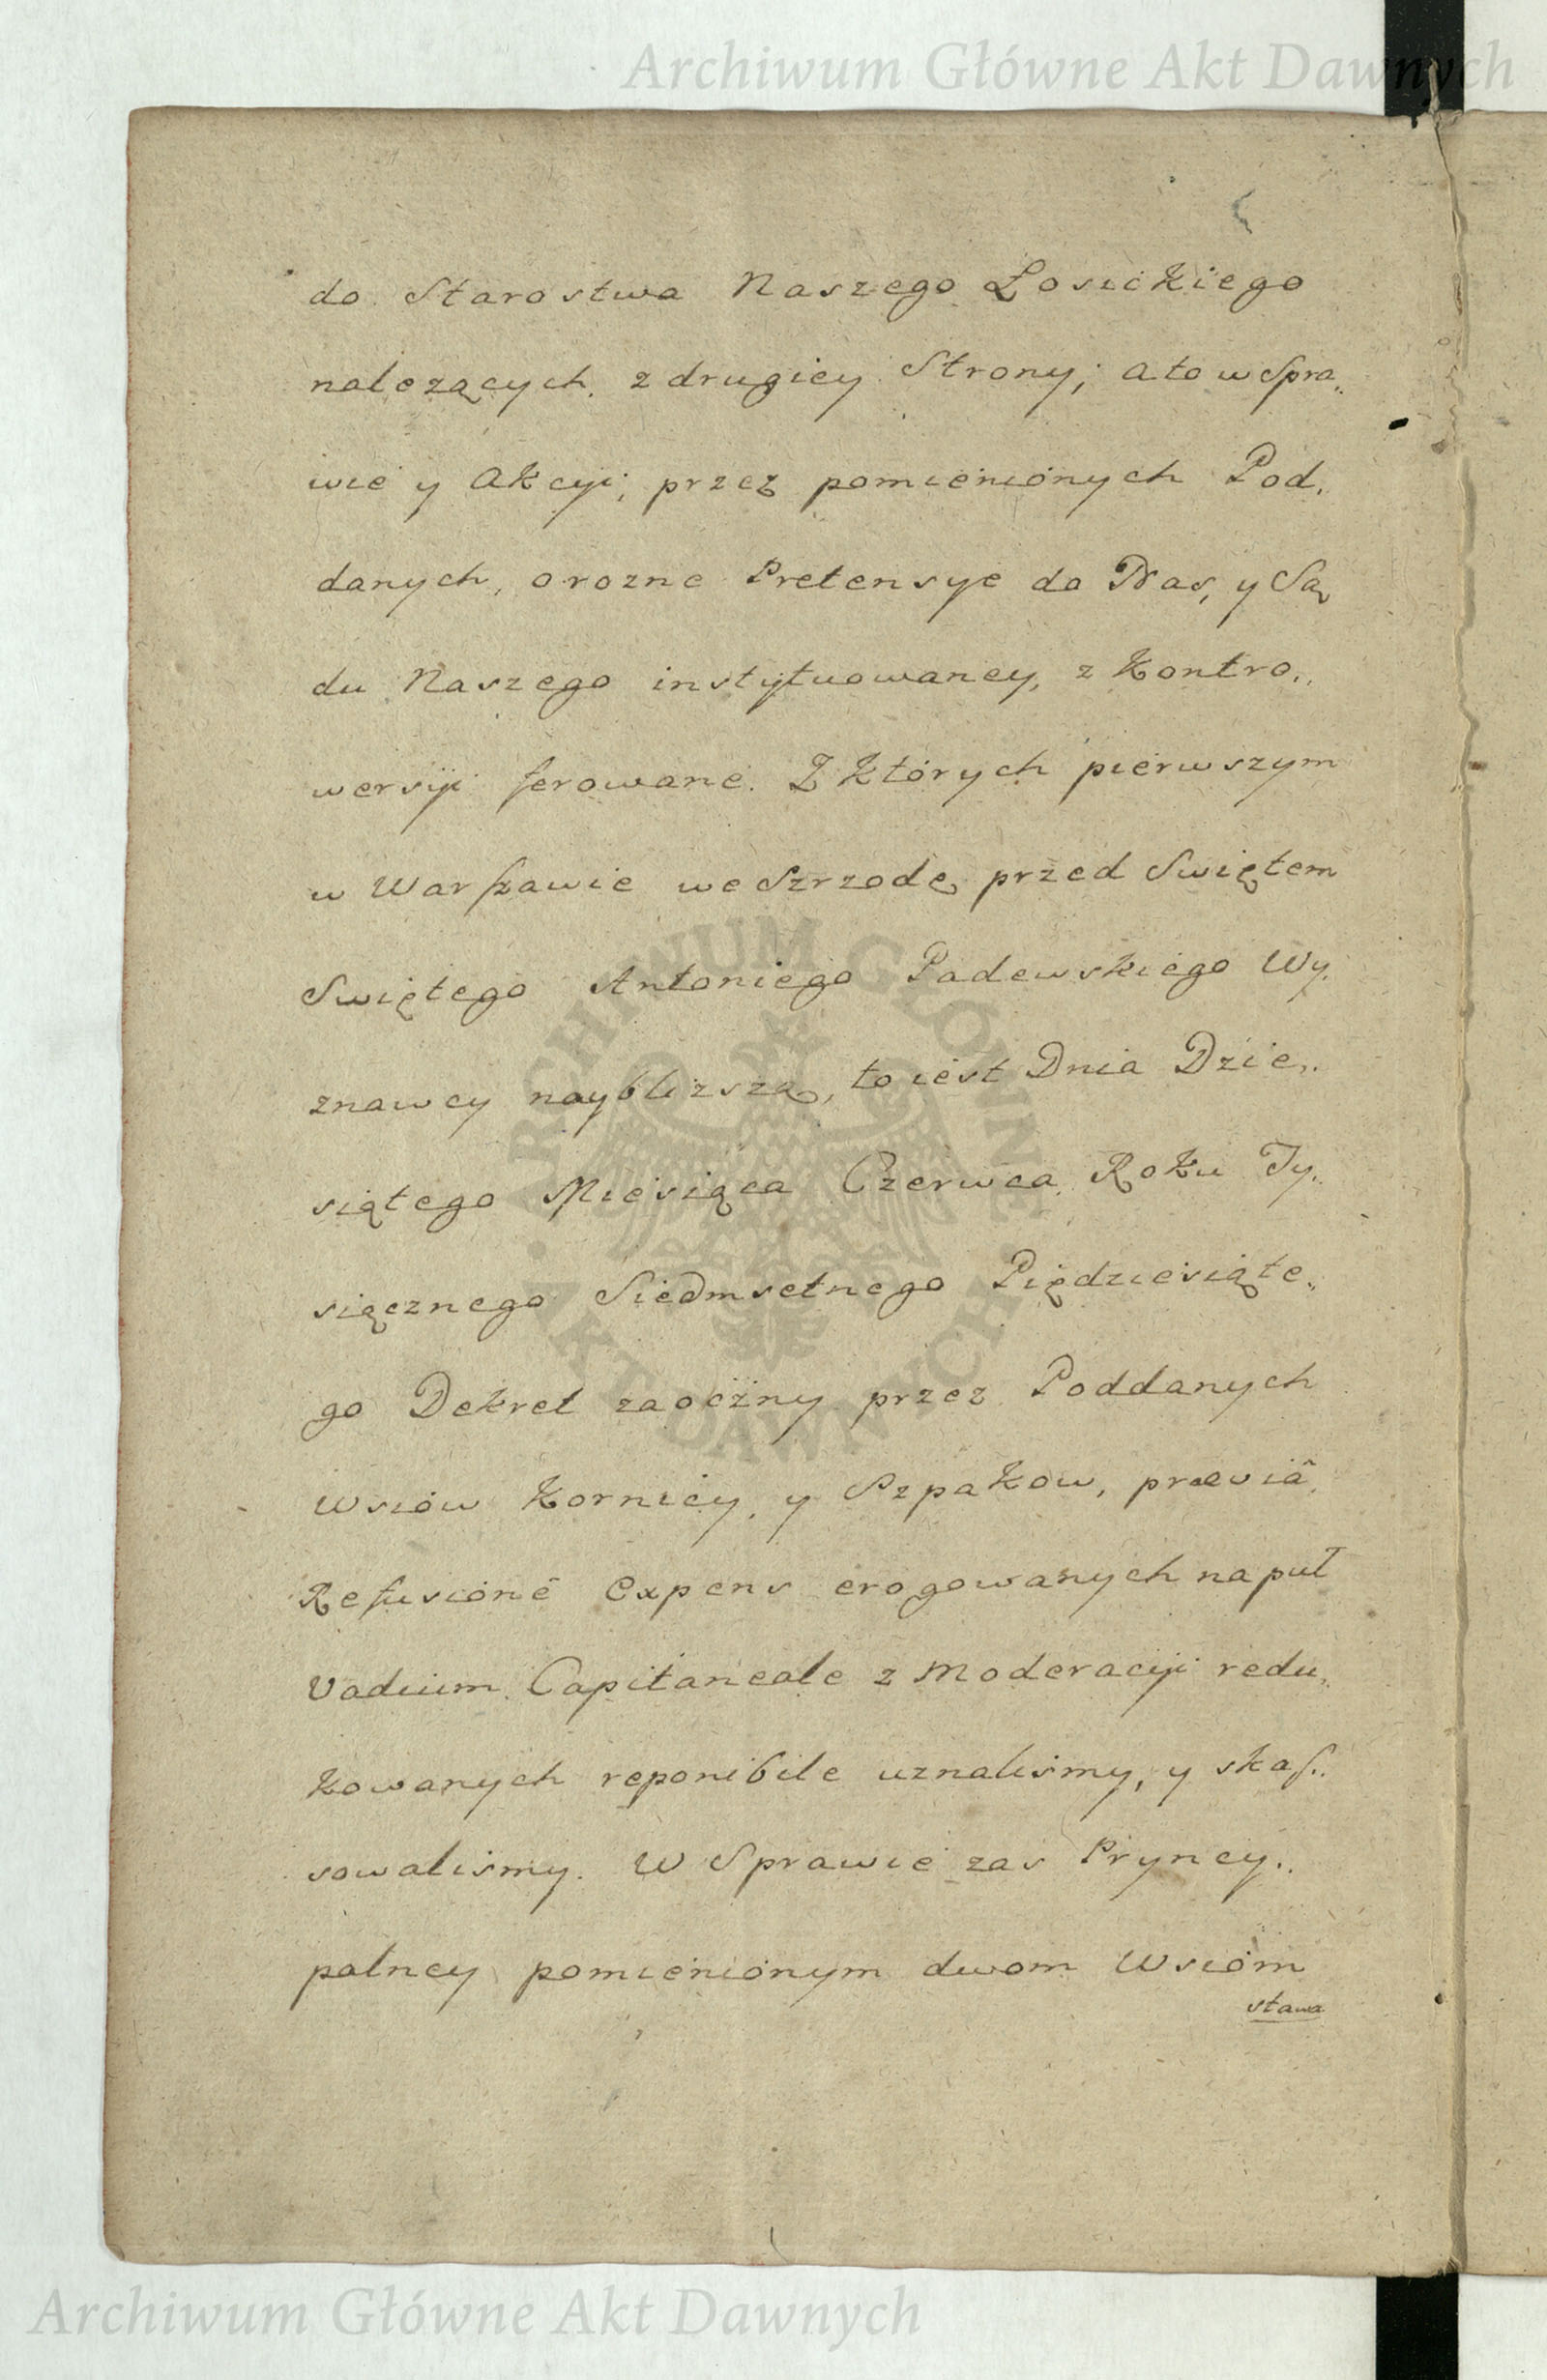 Archiwum Główne Akt Dawnych
do Starostwa Naszego Łosickiego
nalezących. z drugiey Strony; a to w Spra„
wie y Akcyi; przez pomienionych Pod„
danych, o rozne Pretensye do Nas, y Są
du Naszego instytuowaney, z Kontro„
wersyi ferowane. Z Których pierwszym
w Warszawie we Szrzodę przed Swiętem
Swiętego Antoniego Padewskiego Wy„
znawcy nayblizszą, to iest Dnia Dzie„
siątego Miesiąca Czerwca Roku Ty„
siącznego Siedmsetnego Piędziesiąte„
go Dekret zaoczny przez Poddanych
Wsiow Kornicy, y Szpakow, prævia
Refusione Expens erogowanych na puł
Vadium Capitaneale z Moderacyi redu„
kowanych reponibile uznalismy, y skas„
sowalismy. W Sprawie zas Pryncy„
palney pomienionym dwom Wsiom
stawa
ARCHIWUM GŁÓWNE AKT DAWNYCH
Archiwum Główne Akt Dawnych